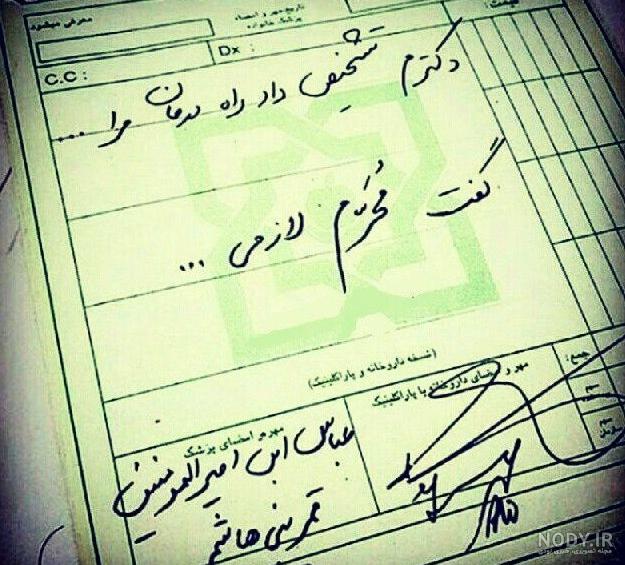 معرفی میشود
تاریخ مهر و امضاء
پزشک خانواده
قیمت:
C.C :
Dx :
دکترم تشخیص داد راه درمان مرا ...
گفت مُحرَّم لازمی ...
(نسخه داروخانه و پاراکلینیک)
مهر و امضای پزشک
مهر و امضای داروخانه یا پاراکلینیک
جمع:
عباس ابن امیرالمومنین
قمر بنی هاشم
NODY.IR